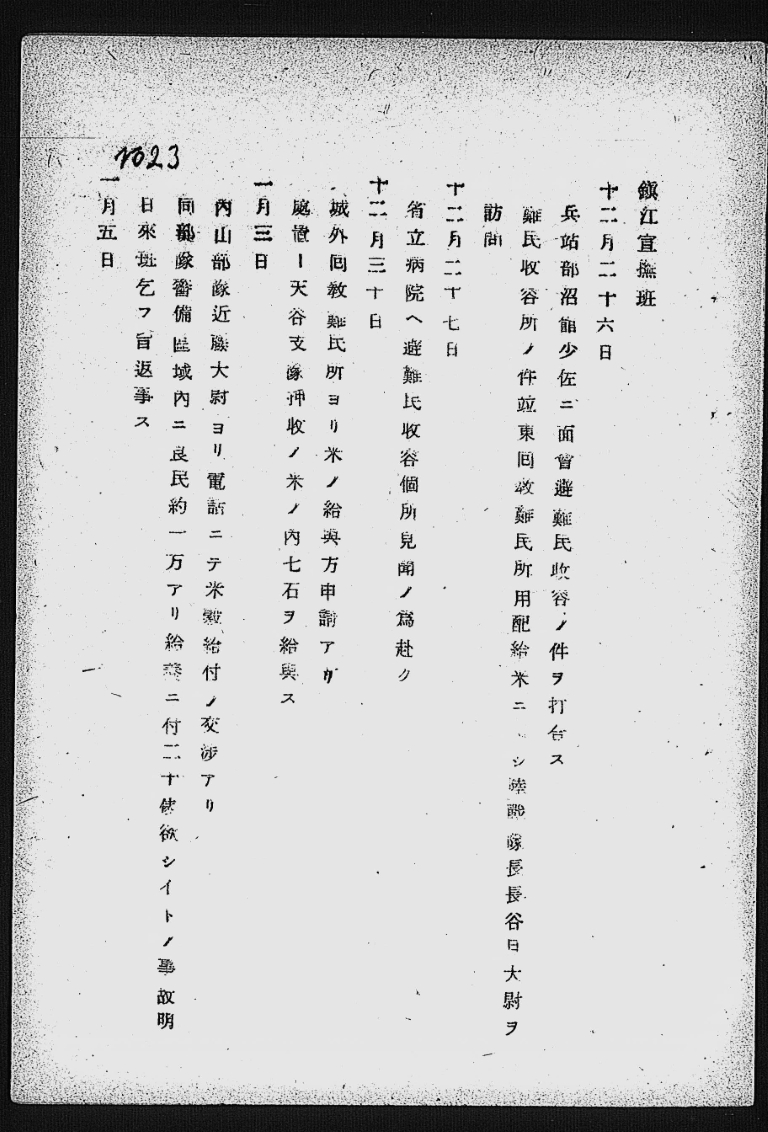 1023
鎭江宣撫班
十二月二十六日
兵站部沼館少佐ニ面會避難民收容ノ件ヲ打合ス
難民收容所ノ件竝東囘敎難民所用配給米ニシ陸戰隊長長谷日大尉ヲ
訪問
十二月二十七日
省立病院ヘ避難民收容個所見聞ノ爲赴ク
十二月三十日
城外囘敎難民所ヨリ米ノ給與方申請アリ
處置ー天谷支隊押收ノ米ノ內七石ヲ給與ス
一月三日
內山部隊近藤大尉ヨリ電話ニテ米穀給付ノ交涉アリ
同部隊警備區域內ニ良民約一万アリ給養ニ付二十俵欲シイトノ事故明
日來班乞フ旨返事ス
一月五日